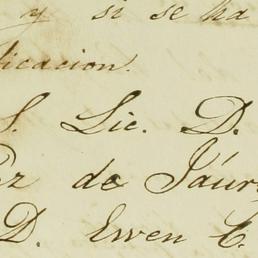 y si se ha
licacion.
S. Lic. D.
ez de Jáur
D. Ewen C.